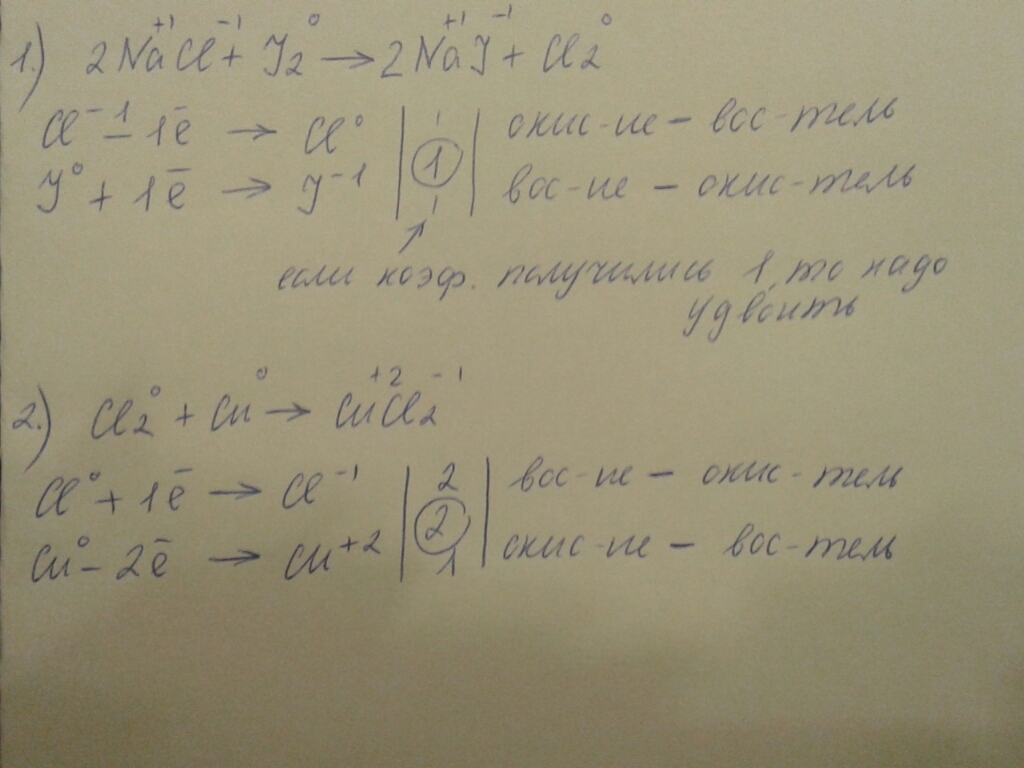 1.) 2Na⁺¹Cl⁻¹ + J₂⁰ → 2Na⁺¹J⁻¹ + Cl₂⁰
Cl⁻¹ – 1ē → Cl⁰ | 1 | окис-ие – вос-тель
① 
J⁰ + 1ē → J⁻¹ | 1 | вос-ие – окис-тель
если коэф. получились 1, то надо
удвоить
2.) Cl₂⁰ + Cu⁰ → Cu⁺²Cl₂⁻¹
Cl⁰ + 1ē → Cl⁻¹ | 2 | вос-ие – окис-тель
②
Cu⁰ – 2ē → Cu⁺² | 1 | окис-ие – вос-тель